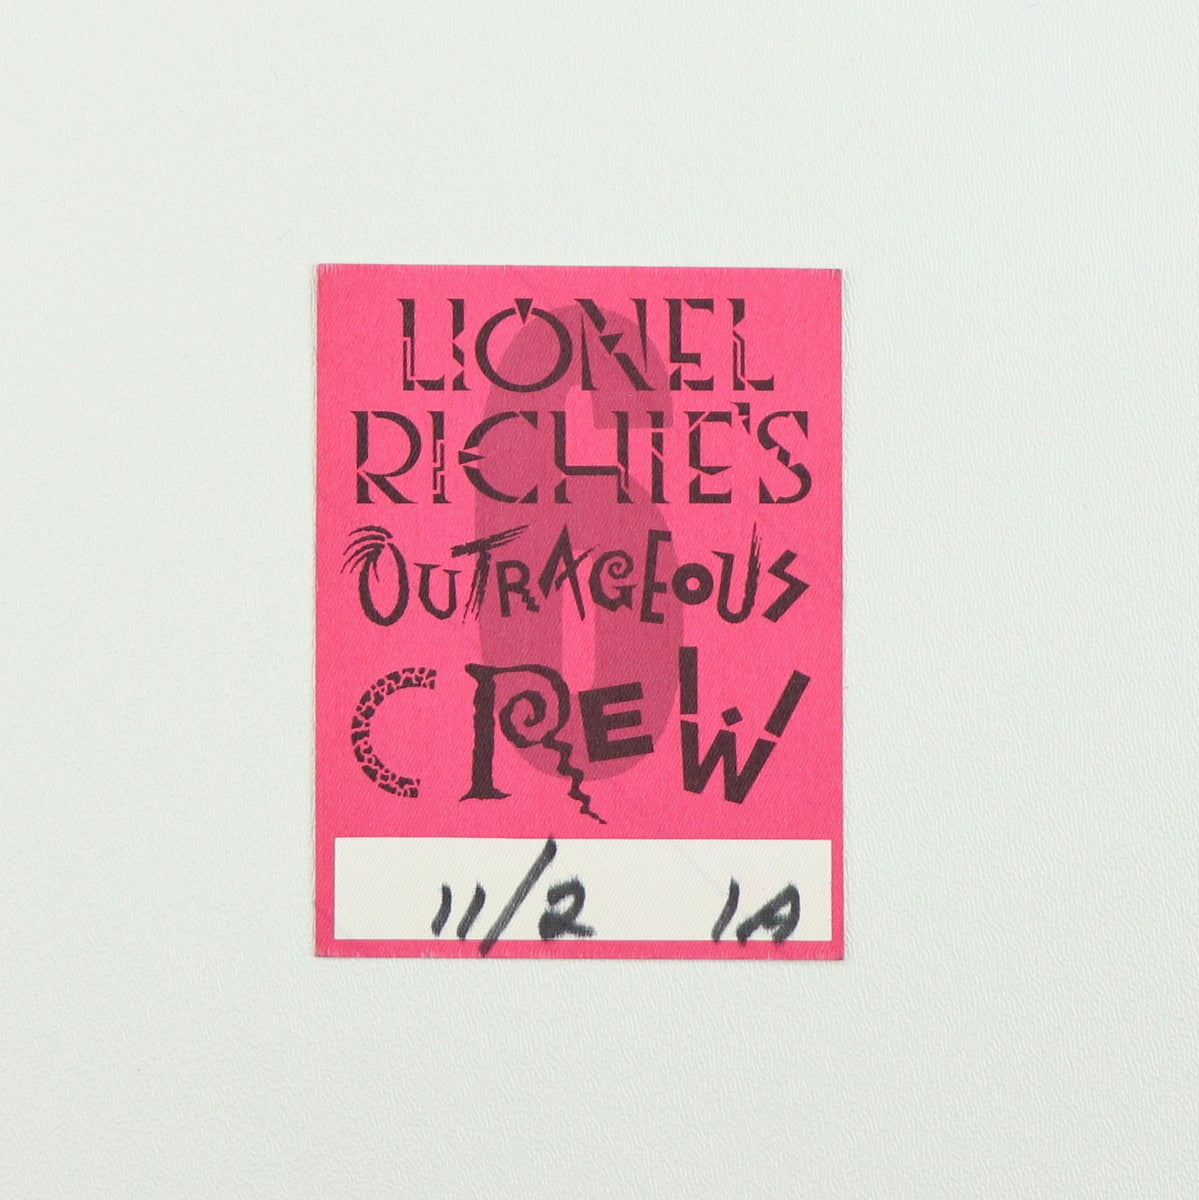 6
LIONEL
RICHIE'S
OUTRAGEOUS
CREW
11/2 1A